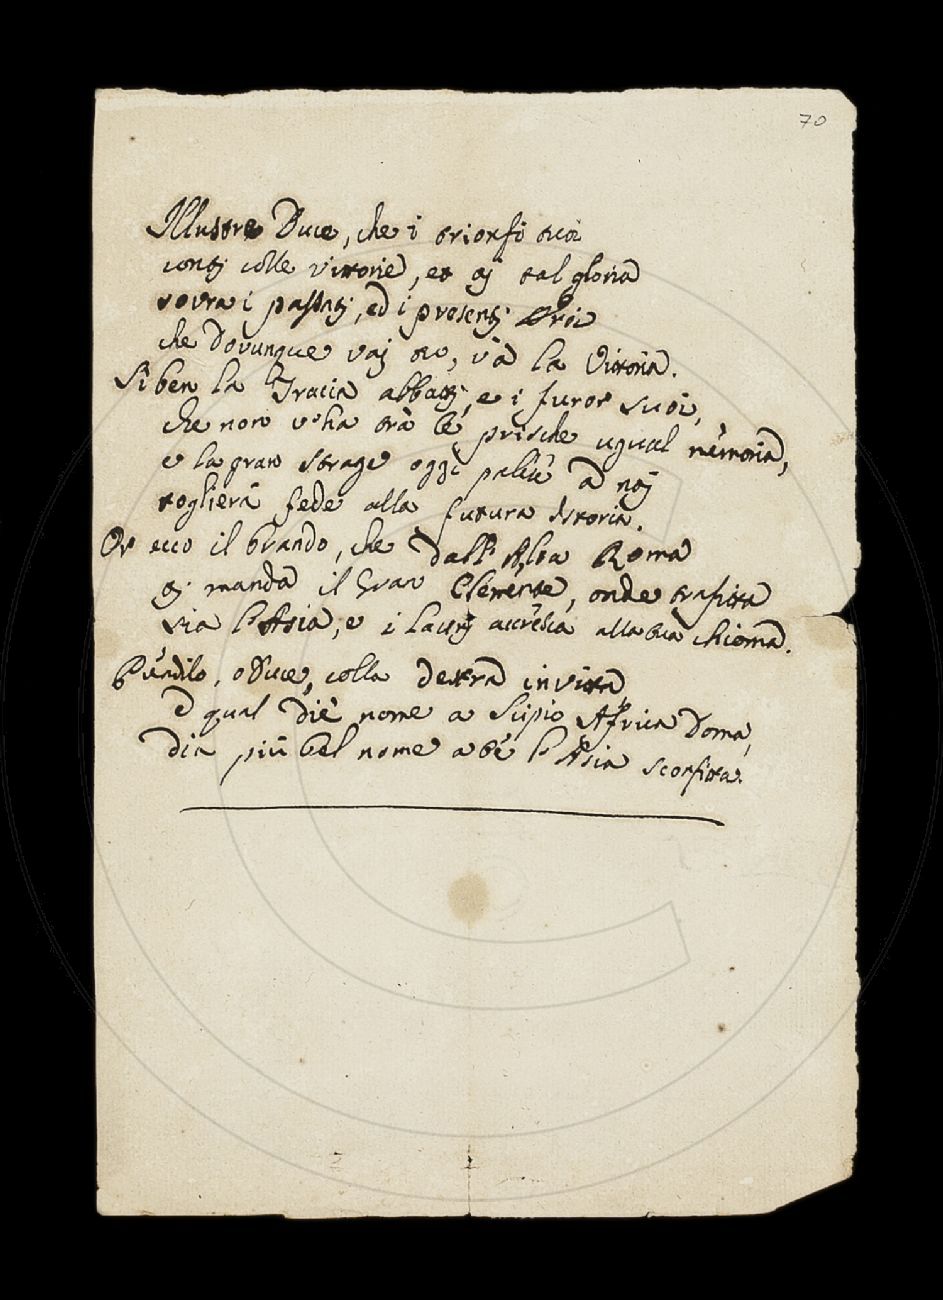 70
Illustre Duce, che i trionfi tuoi
conti colle vittorie, et ai tal gloria
sovra i passati, ed i presenti Eroi
che dovunque vai tu, và la Vittoria.
Si ben la Tracia abbatti, e i furor suoi,
che non v'ha trà le prische ugual memoria,
e la gran strage oggi palese a noi
toglierà fede alla futura Istoria.
Or ecco il brando, che dall' Alta Roma
ti manda il Gran Clemente, onde trafitta
sia l'Asia, e i lauri accresca alla tua chioma.
Prendilo, o Duce, colla destra invitta
e qual diè nome a Scipio Africa doma,
dia più bel nome a te l'Asia sconfitta.